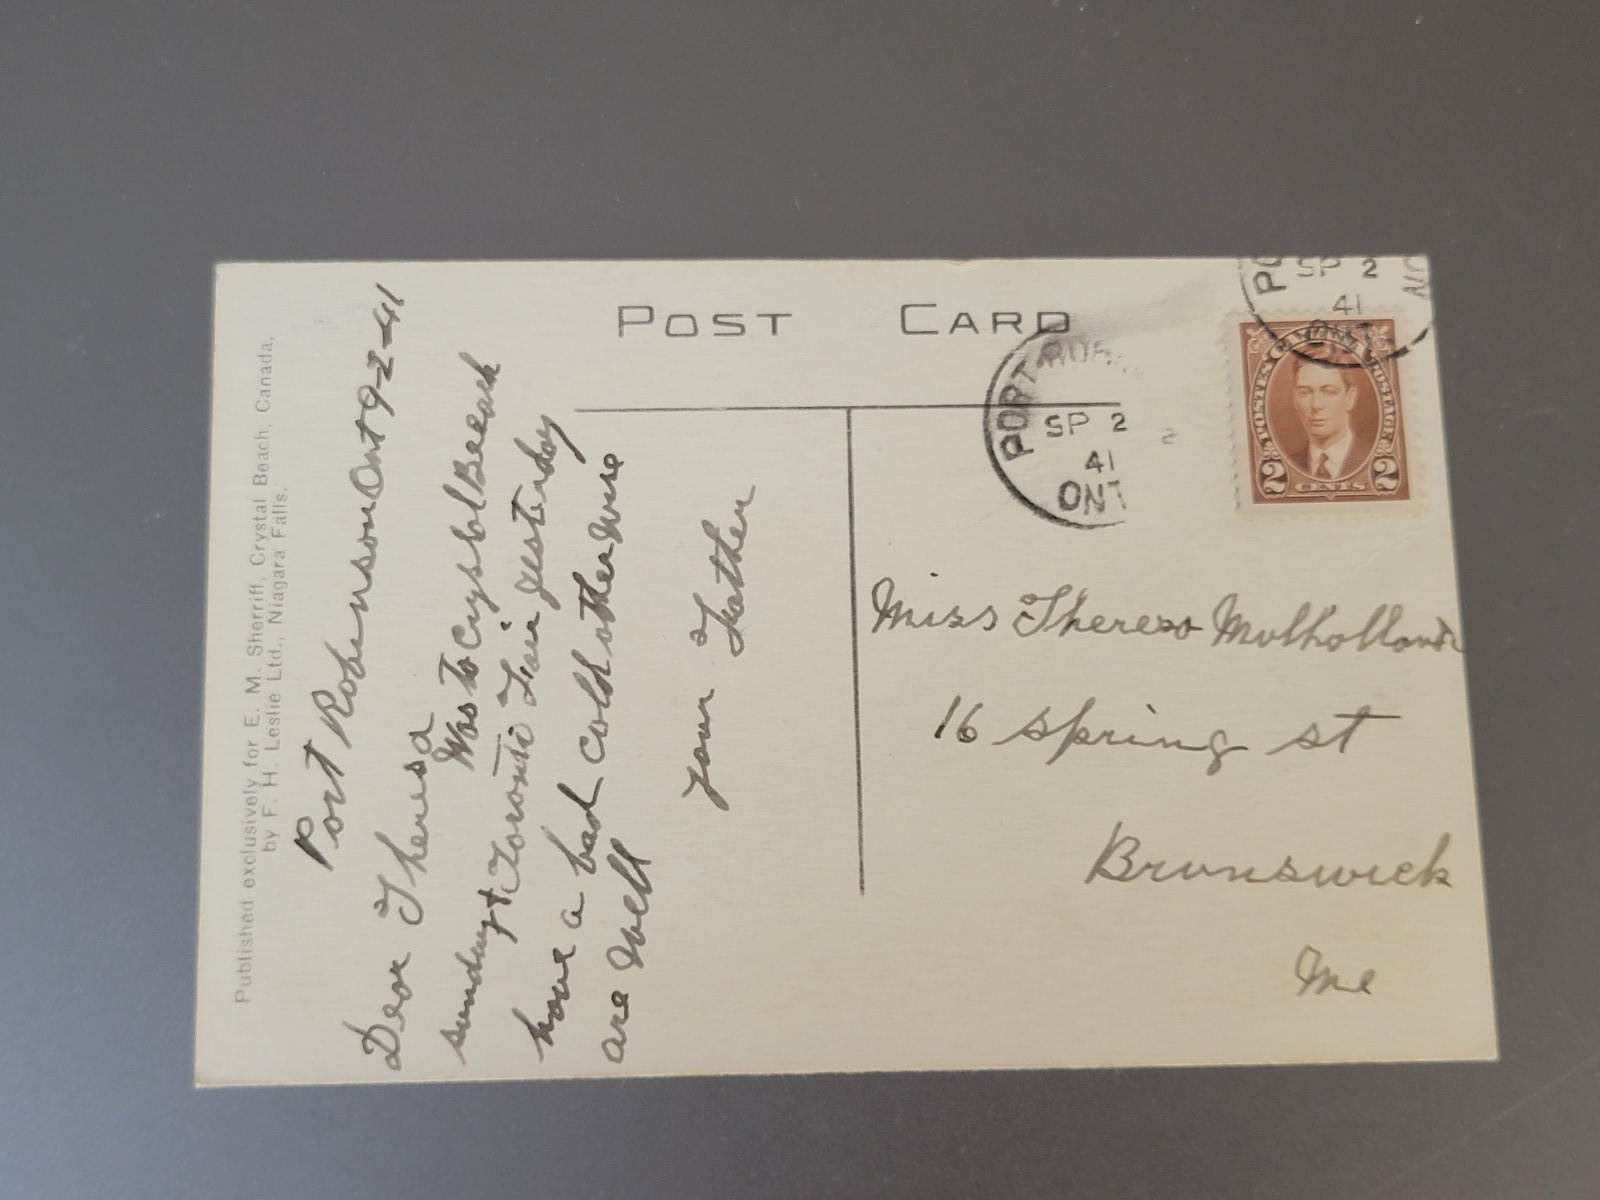 Published exclusively for E. M. Sherriff, Crystal Beach, Canada,
by F. H. Leslie Ltd., Niagara Falls.
Port Robinson Ont 9-2-41
Dear Theresa
Was To Crystal Beach
sunday & Toronto Fair yesterday
have a bad cold otherwise
are well
your Father
POST CARD
PORT ROB
SP 2
41
ONT
PO
SP 2
41
ONT
POSTES CANADA POSTAGE
2 CENTS 2
Miss Theresa Mulholland
16 spring st
Brunswick
Me